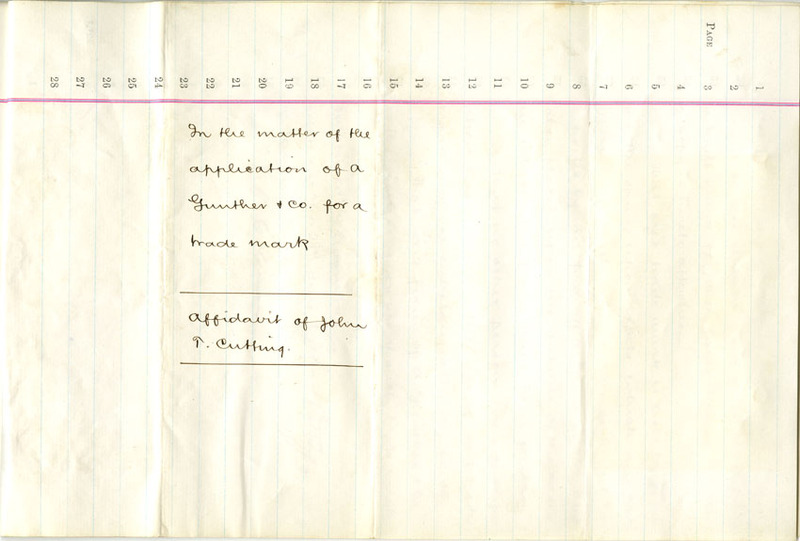 PAGE
1
2
3
4
5
6
7
8
9
10
11
12
13
14
15
16
17
18
19
20
21
22
23
24
25
26
27
28
In the matter of the
application of A
Gunther & Co. for a
trade mark
Affidavit of John
T. Cutting.